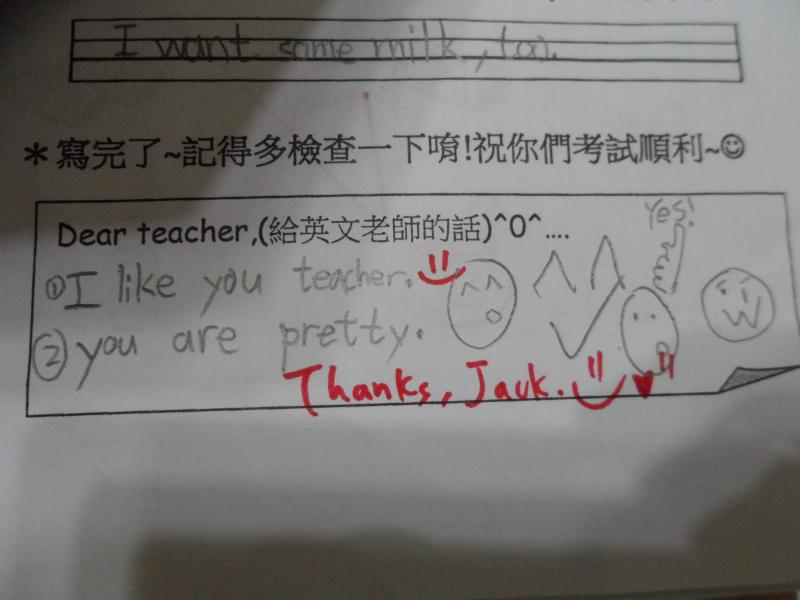 I want some milk, too.
*寫完了~記得多檢查一下唷!祝你們考試順利~☺
Dear teacher,(給英文老師的話)^0^....
Yes!
①I like you teacher.
②you are pretty.
Thanks, Jack.